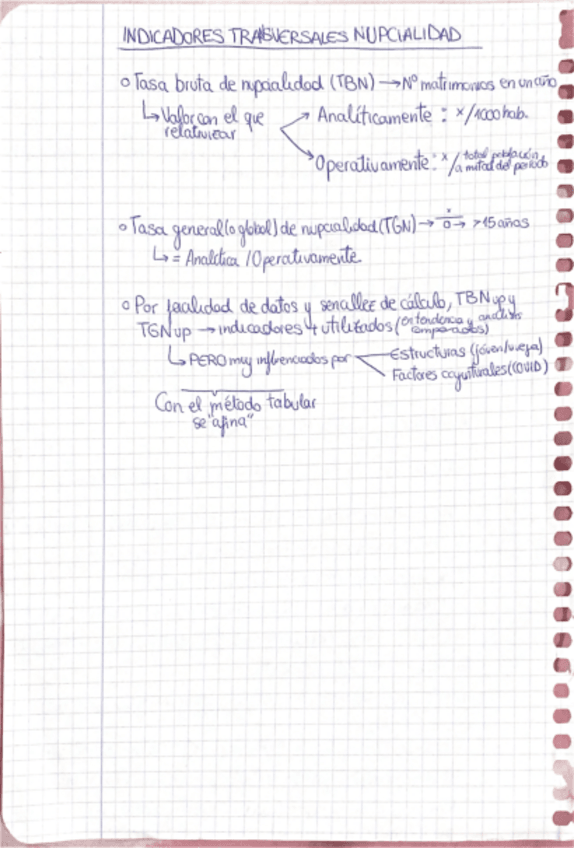 INDICADORES TRANSVERSALES NUPCIALIDAD
o Tasa bruta de nupcialidad (TBN) → Nº matrimonios en un año
↳ Valor con el que
relativizar
Analíticamente : x/1000 hab.
Operativamente : x/ total población
a mitad del período
o Tasa general (o global) de nupcialidad (TGN) → x/0 → >15 años
↳ = Analítica / Operativamente
o Por facilidad de datos y sencillez de cálculo, TBNup y
TGNup → indicadores + utilizados (en tendencia y análisis
comparados)
↳ PERO muy influenciados por
Estructuras (joven/vieja)
Factores coyunturales (COVID)
Con el método tabular
se "afina"